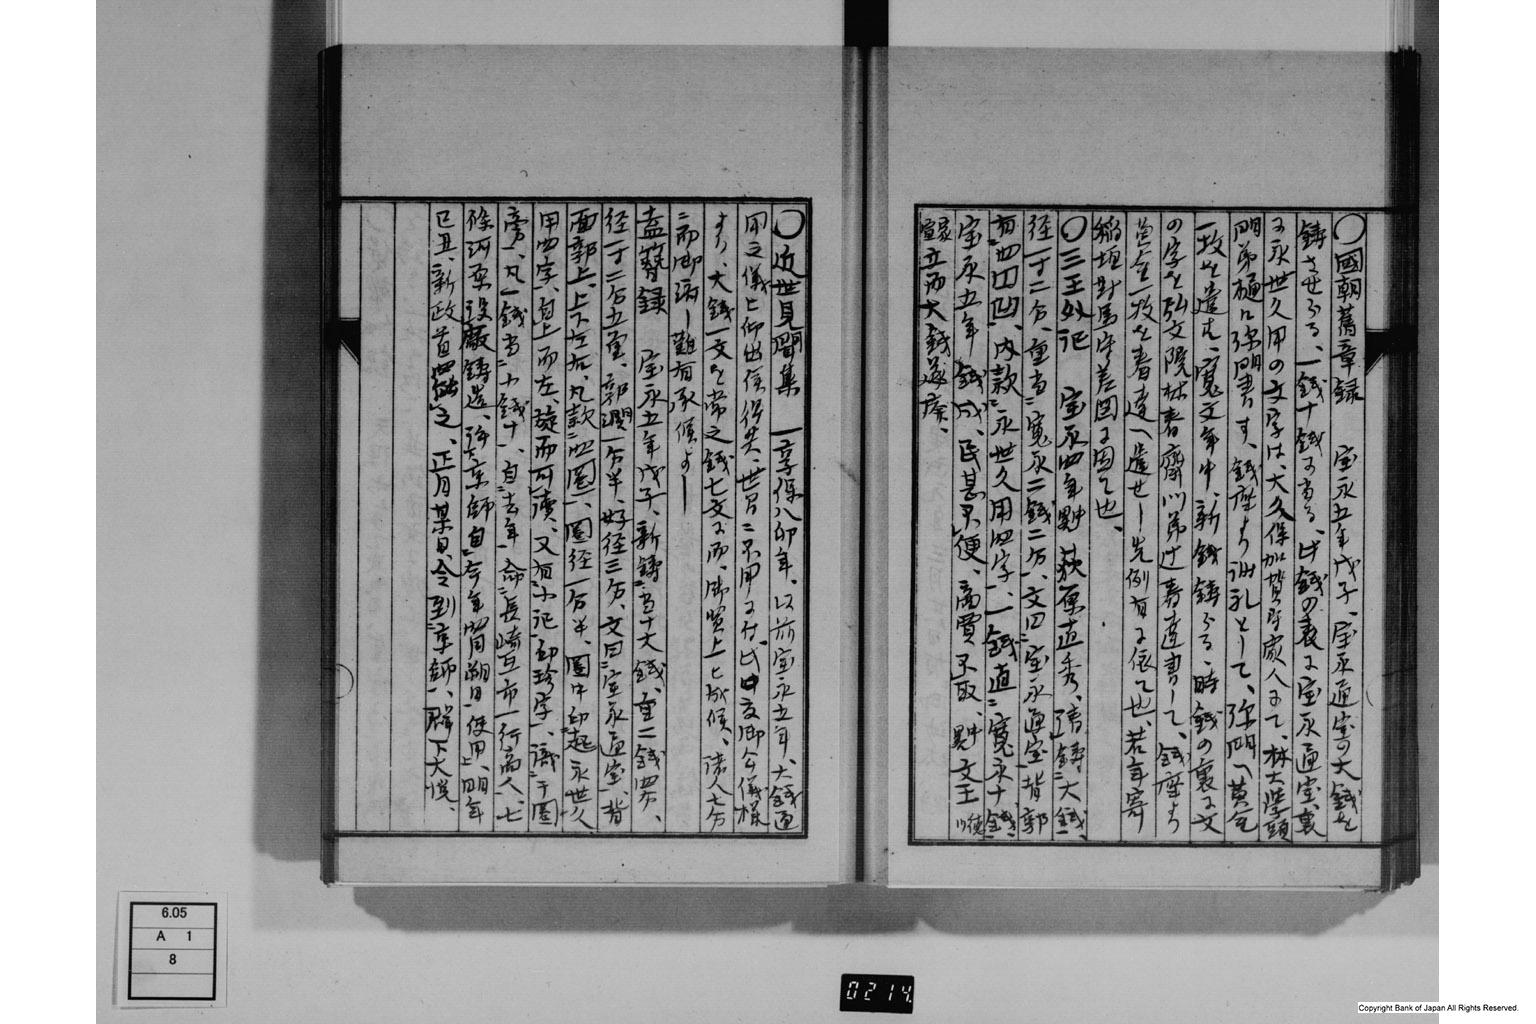 〇國朝舊章録 宝永五年戊子、宝永通宝の大銭を
鋳させらる、一銭十銭に当る、此銭の表に宝永通宝、裏
に永世久用の文字は、大久保加賀守家人にて、林大学頭
門弟樋口弥門書す、銭座より謝礼として、弥門へ黄金
一枚を遣す、寛文年中、新銭鋳らる時銭の裏に文
の字を弘文院林春斎門弟辻春達書して、銭座より
黄金一枚を春達へ遣せし先例有に依て也、若年寄
稲垣対馬守差図に因て也、
〇三王外記 宝永四年 荻原重秀、請鋳大銭、
径一寸二分、重当寛永二銭二分、文曰宝永通宝、背郭
有四凹、内款永世久用四字、一銭直寛永十銭、
宝永五年銭成、民甚不便、商賈不取、文王
立而大銭遂廃、
〇近世見聞集 一享保八卯年、以前宝永五年、大銭通
用之儀被仰出候得共、世間ニ不用に付、此度御公儀様
より、大銭一文を常之銭七文に而、御買上被成候、諸人七分
二而御渡し難有承候よし
塩尻録 宝永五年戊子、新鋳当十大銭、重二銭四分、
径一寸二分五厘、郭濶一分半、好径三分、文曰宝永通宝、背
面郭上、上下左右、凡款四圏、圏径一分半、圏中印起永世久
用四字、自上而左、旋而可読、又有小記印珍字、識于圏
旁、凡一銭当小銭十、自去年命長崎互市一行商人、七
條河原設厰鋳造、許京師自今年閏朔日使用、明年
己丑、新政首罷之、正月某日、令到京師、輦下大悦、
6.05
A 1
8
0214
Copyright Bank of Japan All Rights Reserved.